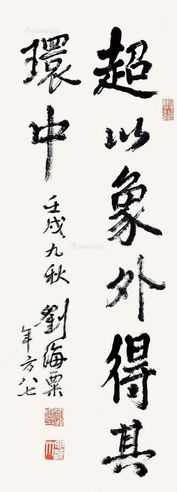 超以象外得其
環中
壬戌九秋
劉海粟
年方八七